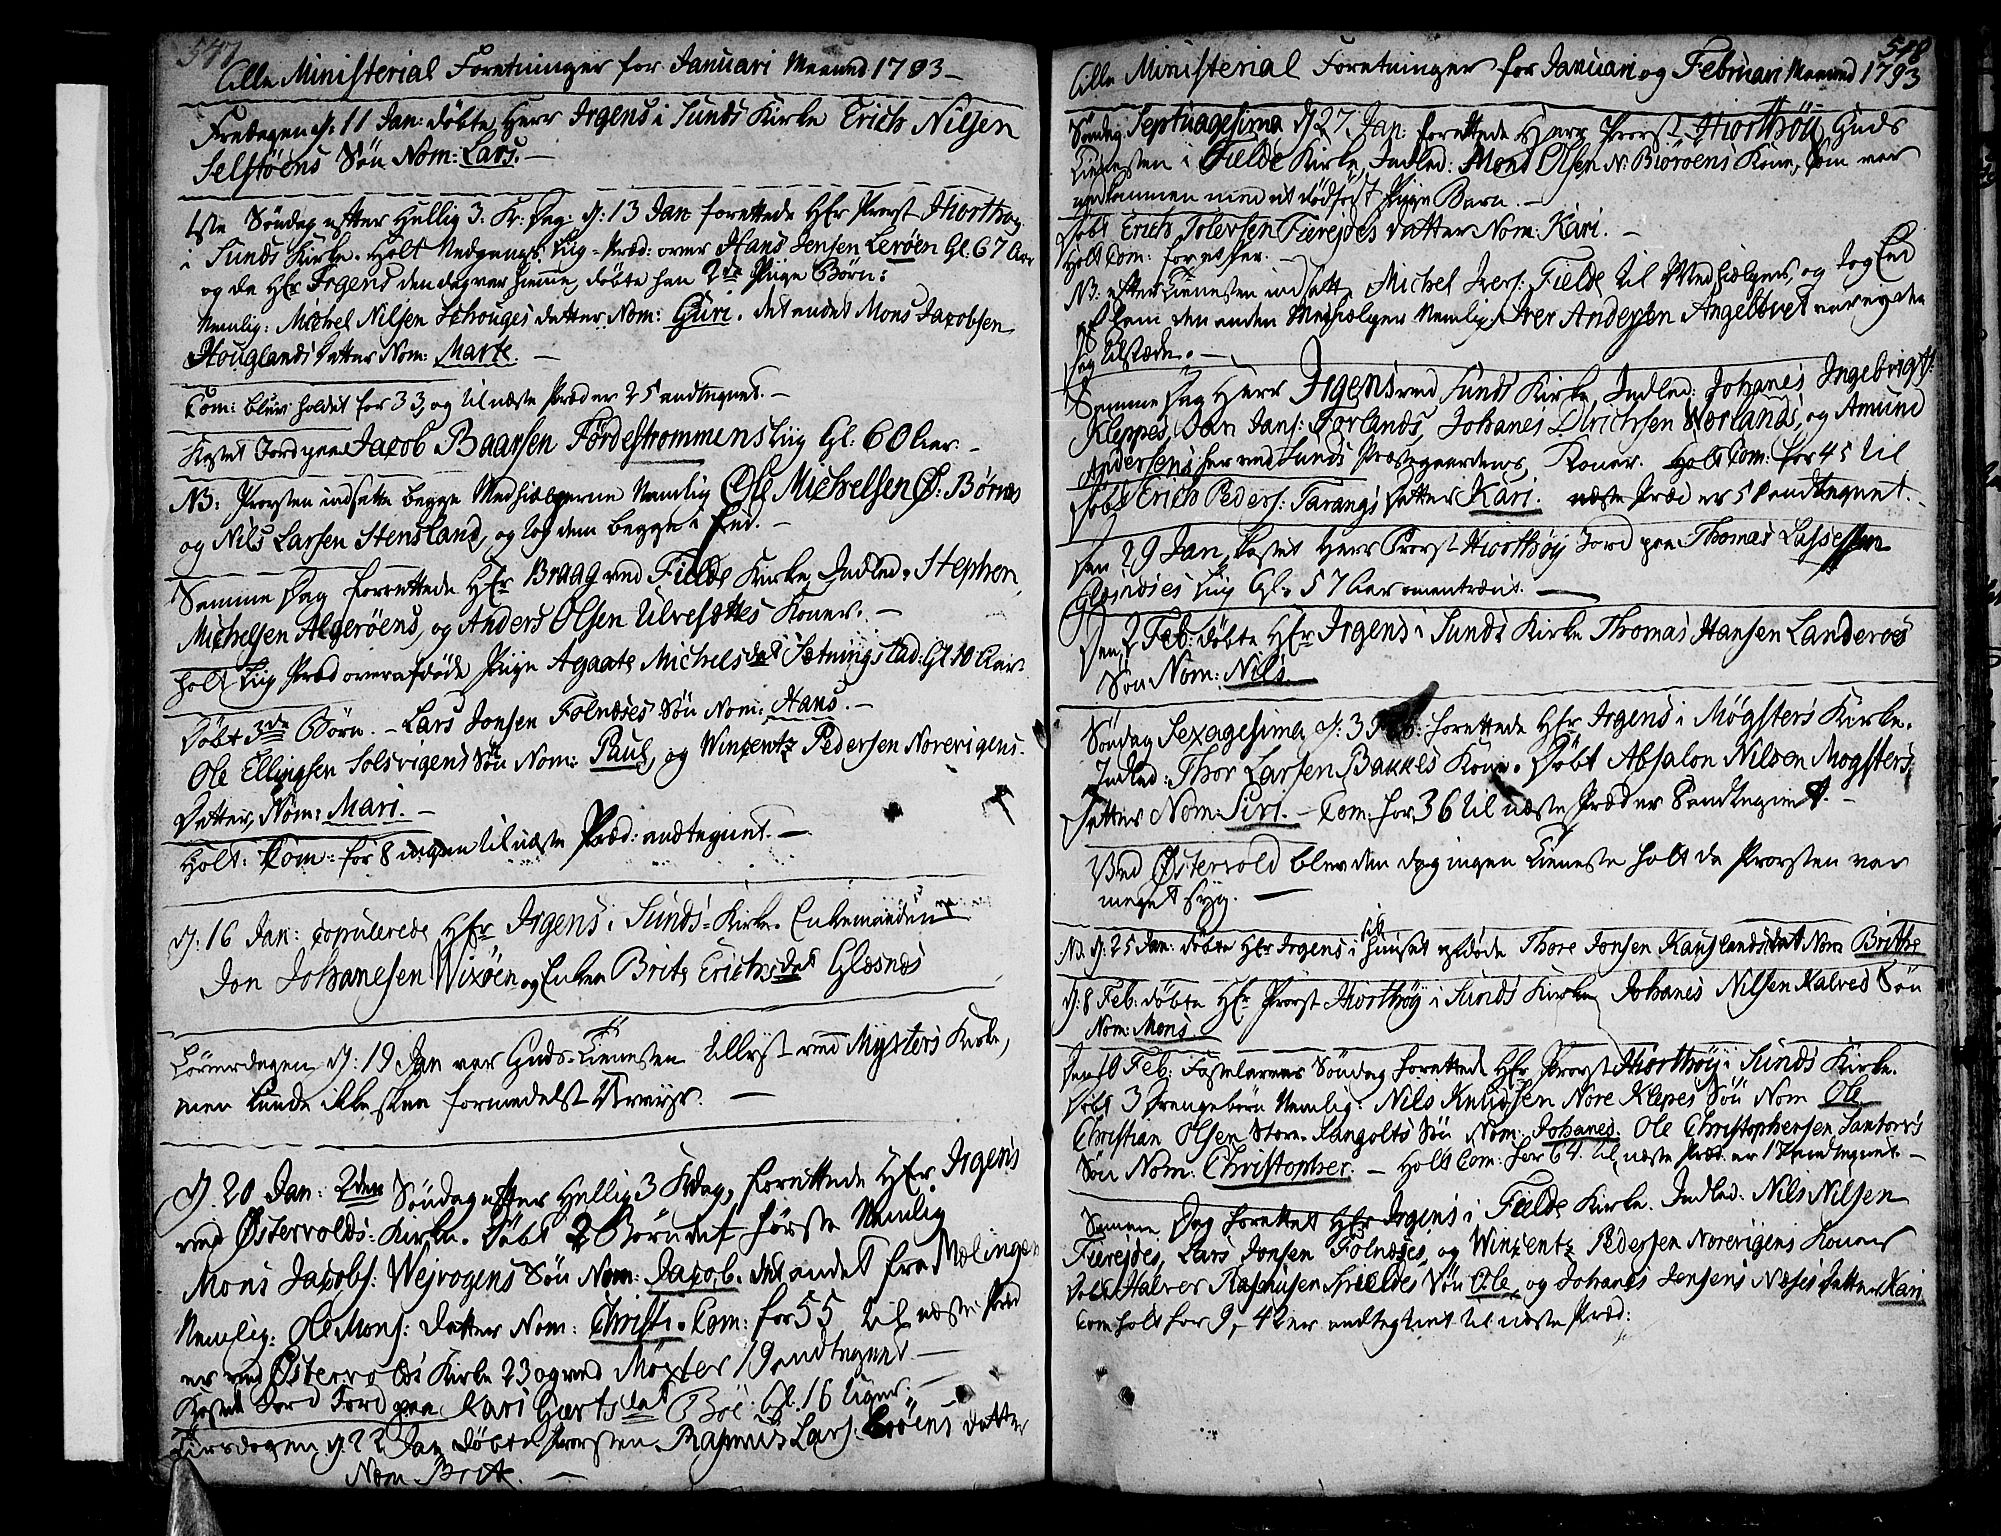 547
Alle Ministerial Forretninger for Januari Maaned 1793
Fredagen d: 11 Jan: døbte Herr Irgens i Sunds Kirke Erich Nilsen
Selstøens Søn Nom: Lars. —
1ste Søndag efter Hellig 3. K: Dag: d: 13 Jan forettede HEr Provst Hiorthøy
i Sunds Kirke. Holt Liig-Præd: over Hans Jensen Lerøen Gl. 67 Aar
og da HEr Irgens den dag var hiemme, døbte han 2de Piige Børn:
Nemlig: Michel Nilsen Schouges datter Nom: Guri. det andet Mons Jacobsen
Houglands datter Nom: Marte. —
Com: blev holdet for 33, og til næste Præd er 25 andtegnet. —
Kastet Jord paa Jacob Baarsen Førdestrommens Liig Gl. 60 Aar. —
NB: Provsten indsatte begge Medhielperne Nemlig Ole Michelsen Ø: Børnes
og Nils Larsen Stensland, og tog dem begge i Eed. —
Samme Dag forrettede HEr Braag ved Fielde Kirke, Indled: Stephen
Michelsen Algerøens, og Anders Olsen Ulvesættes Koner. —
holt Liig Præd over afdøde Piige Agaate Michelsdat Sætningstad: Gl 10 Aar.
Døbt 3de Børn. — Lars Jonsen Folnæses Søn Nom: Hans. —
Ole Ellingsen Solsvigens Søn Nom: Paul, og Winzentz Pedersen Norevigens
Datter, Nom: Mari. —
Holt: Com: for 8 ingen til næste Præd: andtegnet. —
d: 16 Jan: copulerede HEr Irgens i Sunds-Kirke. Enkemanden
Jon Johanesen Wixøen og Enken Brite Erichsdat Glesnes
Løverdagen d: 19 Jan var Guds-Tienesten tillyst ved Myxters Kirke,
men kunde ikke skee formedelst Uveyr. —
d. 20 Jan: 2den Søndag efter Hellig 3 K dag, forrettede HEr Irgens
ved Østervolds: Kirke. Døbt 2 Børn det første Nemlig
Mons Jacobs: Wejvogens Søn Nom: Jacob. det andet fra Mælingen
Nemlig: Ole Mons: datter Nom: Christi. Com: for 55 til næste Præd
er ved Østervolds Kirke 23 og ved Møxter 19 andtegnet. —
Kastet Jord paa Kari Giertsdat Bøe: Gl. 16 Uger. —
Tirsdagen d: 22 Jan døbte Provsten Rasmus Lars: Lrøens datter
Nom Brite. —
548
Alle Ministerial Forretninger for Januari og Februari Maaned 1793
Søndag Septuagesima d 27 Jan: forettede Herr Provst Hiorthøy Guds
Tienesten i Fielde Kirke, Indled: Mons Olsen N: Biørøens Kone, som var
nedkommen med et dødføst Piige Barn. —
Døbt Erich Tolersen Fierejdes datter Nom: Kari. —
Holt Com: for
NB: efter Tienesten indsatte Michel Ivers: Fielde til Medhielper, og tog Eed
af ham den anden Medhielper Nemlig Iver Andersen Angeltvet var ey den
dag tilstede. —
Samme Dag Herr Irgens ved Sunds Kirke, Indled: Johanes Ingebrigts:
Kleppes, Jan Jans: Forlands, Johanes Dirichsen Worlands, og Amund
Andersens her ved Sunds Præstegaardens, Koner. Holt Com: for 45 til
Døbt Erich Peders: Tarangs datter Kari. næste Præd er 58 andtegnet. —
den 29 Jan kastet Herr Provst Hiorthøy Jord paa Thomas Lassesen
Glæsnæses Liig Gl: 57 Aar omentrent. —
Den 2 Feb: døbte HEr Irgens i Sunds Kirke Thomas Hansen Landeroes
Søn Nom: Nils.
Søndag Sexagesima d: 3 Feb: forettede HEr Irgens i Møgsters Kirke.
Indled: Thor Larsen Bakkes Kone. Døbt Absalon Nilsen Mogsters
Datter Nom: Siri. — Com: for 36 til næste Præd er 8 andtegnet. —
Ved Østervold blev den dag ingen Tieneste holt da Provsten var
meget syg. —
NB. d: 25 Jan: døbte HEr Irgens i sit Huuset Thore Jonsen Kauslands dat Nom Brithe
d: 8 Feb: døbte HEr Provst Hiorthøy i Sunds Kirke, Johanes Nilsen Kalves Søn
Nom: Mons
Den 10 Feb: Fastelavens Søndag forettede HEr Provst Hiorthøy i Sunds Kirke.
Døbt 3 Drengebørn Nemlig: Nils Knudsen Nore Klepes Søn Nom Ole
Christian Olsen Store Rangolts Søn Nom: Johanes. Ole Christophersen Santorvs
Søn Nom: Christopher. — Holt Com: for 64. til næste Præd. er 17 andtegnet. —
Samme Dag forettet HEr Irgens i Fielde Kirke. Indled: Nils Nilsen
Fierejdes, Lars Jonsen Folnæses, og Winzentz Pedersen Norevigens Koner
Døbt Halver Rasmusen Skieldes Søn Ole, og Johanes Jensens Næses datter Kari
Com holt for 9, 42 er andtegnet til næste Præd: